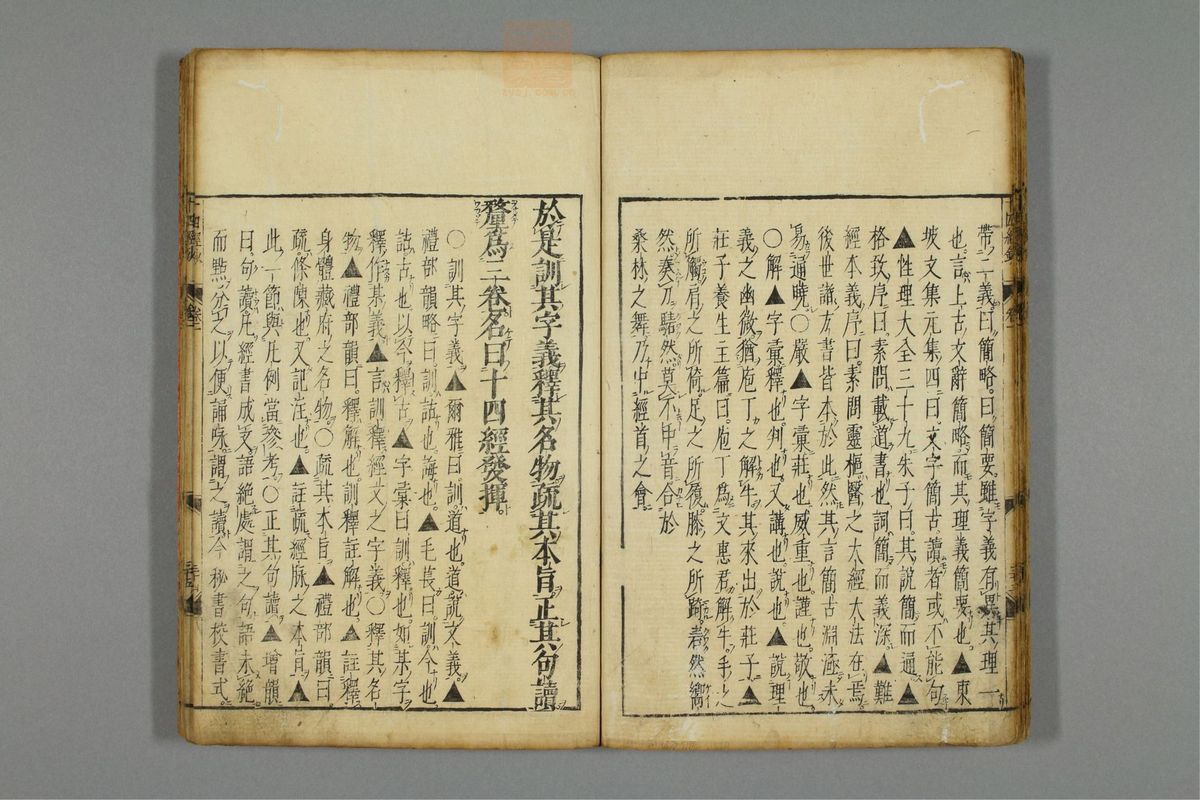 帶二一義曰簡略曰簡要雖字義有異其理一
也言上古文辭簡略而其理義簡要也▲東
坡文集元集四曰文字簡古讀者或不能句
▲性理大全三十九朱子曰其說簡而通▲
格致序曰素問載道書也詞簡而義深▲難
經本義序曰素問靈樞醫之大經大法在焉
後世諸方書皆本於此然其言簡古淵涵未
易通曉○嚴▲字彙莊也威重也謹也敬也
○解▲字彙釋也判也又講也說也▲說理
義之幽微猶庖丁之解牛其來出於莊子▲
莊子養生主篇曰庖丁爲文惠君解牛手之
所觸肩之所倚足之所履膝之所踦砉然嚮
然奏刀騞然莫不中音合於
桑林之舞乃中經首之會
於是訓其字義釋其名物疏其本旨正其句讀
釐爲三卷名曰十四經發揮
○訓其字義▲爾雅曰訓道也道說文義▲
禮部韻略曰訓詁也誨也▲毛萇曰訓今也
詁古也以今釋古▲字彙曰訓釋也如某字
釋作某義▲言訓釋經文之字義○釋其名
物▲禮部韻曰釋解也訓釋註解也▲註釋
身體藏府之名物○疏其本旨▲禮部韻曰
疏條陳也又記注也▲註疏經脉之本旨▲
此一節與凡例當參考○正其句讀▲增韻
曰句讀凡經書成文語絶處謂之句語未絶
而點分之以便誦咏謂之讀今秘書校書式